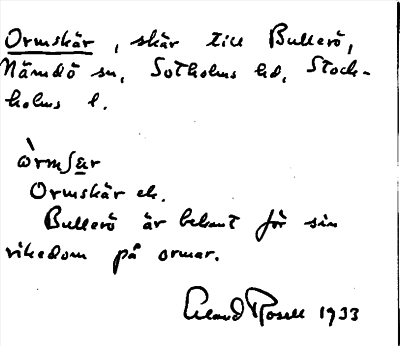 Ormskär, skär till Bullerö,
Nämdö sn, Sotholms hd, Stock-
holms l.
òrmʃær
Ormskär ek.
Bullerö är bekant för sin
rikedom på ormar.
Erland Rosell 1933